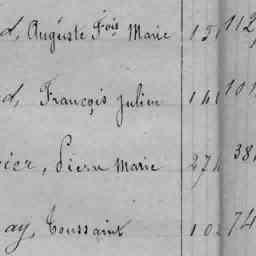 d, Auguste Fois Marie 151 112,
d, François Julien 101
ier, Pierre Marie 27 38
ay, Toussaint 10 74